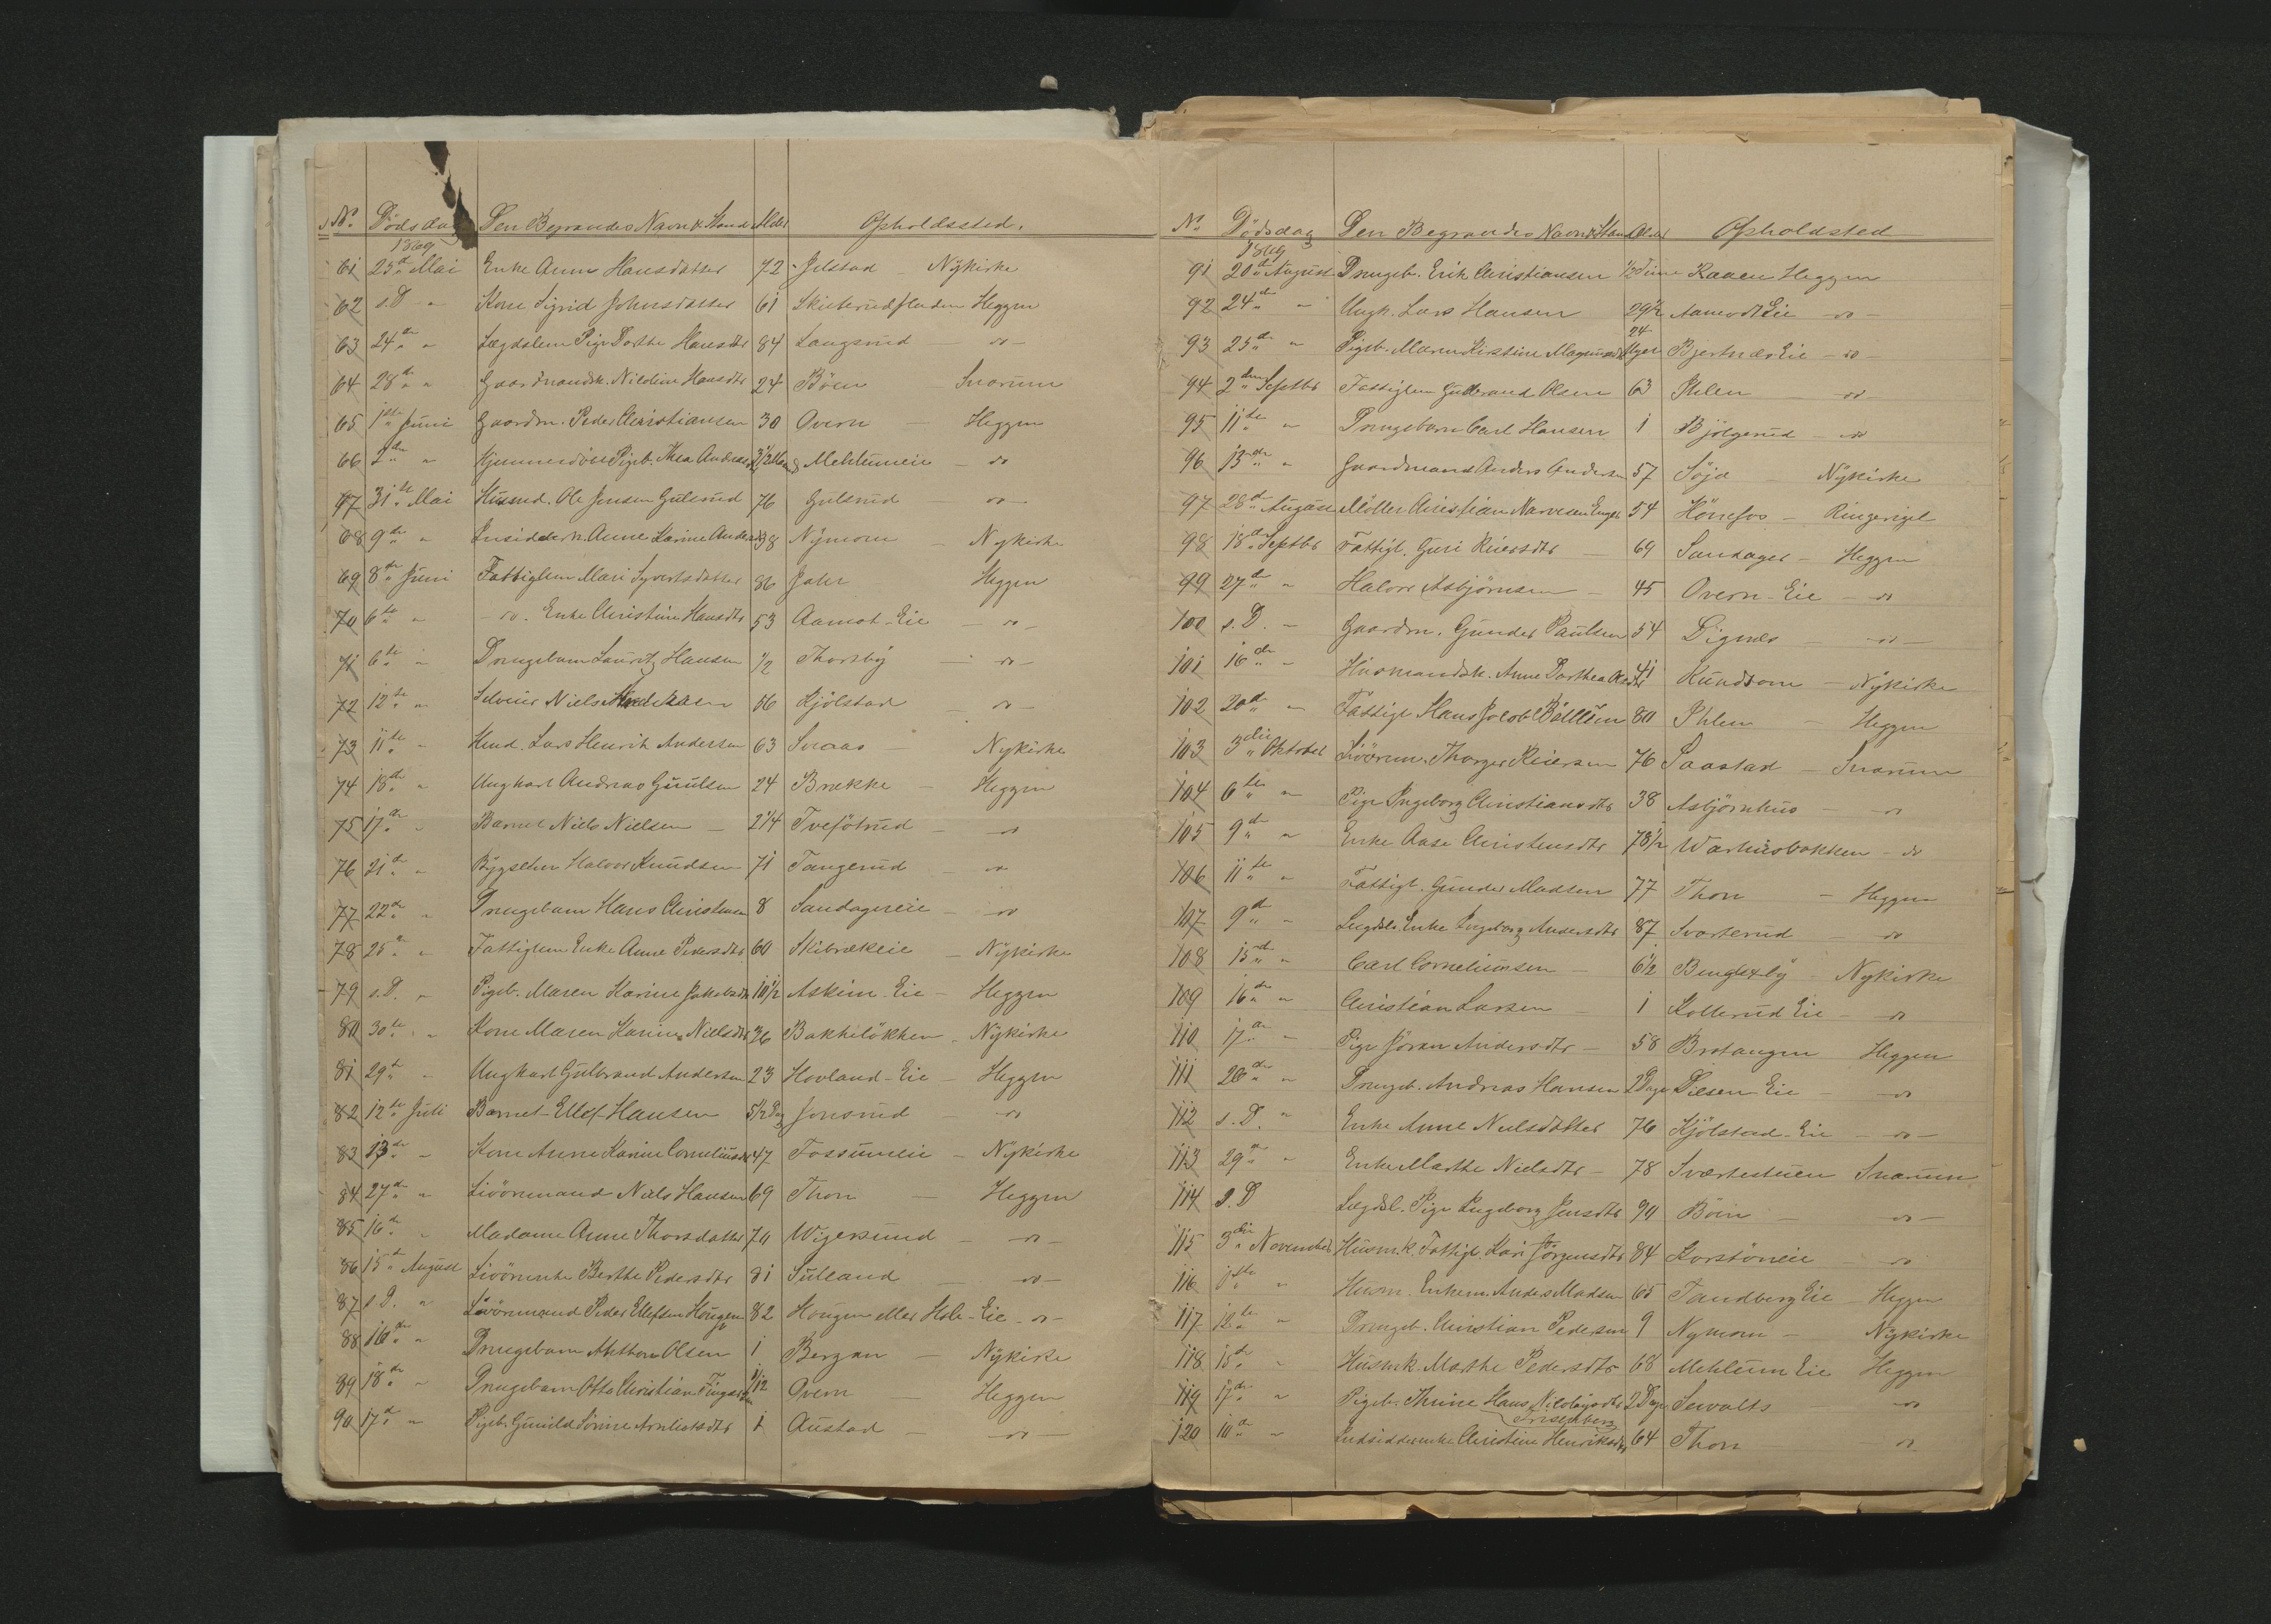 No. Dödsdag Den Begravedes Navn & Stand Alder Opholdssted.
1869
61 23de Mai Enke Anne Hansdatter 72 Jelstad – Nykirke
62 s.D. " Kone Sigrid Johnsdatter 61 Skuterudfladen Heggen
63 24de " Lægdslem Pige Dorthe Hansdtr 84 Langerud – do –
64 28de " Gaardmandsk. Nicoline Hansdtr 24 Böen – Snarum
65 1ste Juni Gaardm. Peder Christiansen 30 Overn – Heggen
66 2den " Hjemmedöbt Pigeb. Thea Andreas Mehlumeie – do
67 31te Mai Husmd. Ole Jensen Gulsrud 76 Gulsrud do –
68 9de " Insidderk. Anne Karine Andersdtr 38 Nymoen – Nykirke
69 8de Juni Fattiglem Mari Syvertsdatter 86 Jahr Heggen
70 6te " – do. Enke Christine Hansdtr 53 Aamot-Eie – do –
71 6te " Drengebarn Lauritz Hansen 1/2 Thorsby – do –
72 12te " Selveier Niels 56 Kjölstad – do –
73 11te " Hmd. Lars Henrik Andersen 63 Snaas – Nykirke
74 18de " Ungkarl Andreas Guulsen 24 Brekke – Heggen
75 17de " Barnet Niels Nielsen – 2 1/4 Tveföterud – do
76 21de " Bygselm. Halvor Knudsen 71 Tangerud – do
77 22de " Drengebarn Hans Christensen 8 Sandagereie – do
78 25de " Fattiglem Enke Anne Pedersdtr 60 Skibrekeie – Nykirke
79 s.D. " Pigeb. Maren Karine Jakobsdtr 10 1/2 Askim-Eie – Heggen
80 30te " Kone Maren Karine Nielsdtr 36 Bakkelökken – Nykirke
81 29de " Ungkarl Gulbrand Andersen 23 Hovland-Eie – Heggen
82 12te Juli Barnet Ellef Hansen 5 1/2 Dag Jonsrud – do
83 13de " Kone Anne Karine Corneliusdtr 47 Fossumeie – Nykirke
84 27de " Livöremand Niels Hansen 69 Thon – Heggen
85 16de " Madame Anne Thorsdatter 70 Wigersund – do –
86 15de August Livörenke Berthe Pedersdtr 81 Sulland – do –
87 s.D. " Livöremand Peder Ellefsen Hougen 82 Hougen eller Hole-Eie – do –
88 16de " Drengebarn Olsen 1 Bergan – Nykirke
89 18de " Drengebarn Otto Christian 1/12 Overn – Heggen
90 17de " Pigeb. Gunild Sörine Arntsdtr 1 Austad – do –
No. Dödsdag Den Begravedes Navn & Stand Alder Opholdsted
1869
91 20de August Drengeb. Erik Christiansen 1/2 Time Raaen Heggen
92 24de " Ungk. Lars Hansen 29 1/2 Aamodt Eie – do –
93 25de " Pigeb. Maren Kirstine Magnusdtr 24 Uger Bjertnæs Eie – do –
94 2den Septbr Fattiglem Gulbrand Olsen 63 Ihlen – do
95 11te " Drengebarn Carl Hansen 1 Bjölgerud – do
96 13de " Gaardmand Anders Andersen 57 Söja Nykirke
97 28de August Möller Christian Narvesen Enger 54 Hönefos – Ringerige
98 18de Septbr Fattigl. Guri Reiersdtr – 69 Sandager – Heggen
99 27de " Halvor Asbjörnsen – 45 Overn-Eie – do
100 s.D. – Gaardm. Gunder Paulsen 54 Dignes – do –
101 16de " Husmandsk. Anne Dorthea Olesdtr 41 Kundsom – Nykirke
102 20de " Fattigl Hans Jacob 80 Ihlen – Heggen
103 3die Oktober Livörem. Thorger Reiersen 76 Saastad – Snarum
104 6te " Pige Ingeborg Christiansdtr 38 Asbjörnhus – do
105 9de " Enke Aase Christensdtr 73 1/2 Warhusbakken – do
106 11te " Fattigl. Gunder Madsen 77 Thon – Heggen
107 9de " Lægdsl. Enke Ingeborg Andersdtr 87 Svarterud – do
108 15de " Carl Corneliussen – 6 1/2 Bingleby – Nykirke
109 16de " Christian Larsen – 1 Kollerud Eie – do
110 17de " Pige Jöran Andersdtr – 58 Brotangen Heggen
111 20de " Drengeb. Andreas Hansen 2 Dage Diesen Eie – do
112 s.D. " Enke Anne Nielsdatter 76 Kjölstad-Eie – do –
113 29de " Enke Marthe Nielsdtr – 78 Sværtestuen Snarum
114 s.D Lægdsl. Pige Ingeborg Jensdtr 90 Böen – do –
115 3die November Husm.k. Fattigl. Kari Jörgensdtr 84 Korstöneie – do
116 " Husm. Enkem. Anders Madsen 65 Tandberg Eie Heggen
117 12te " Drengeb. Christian Pedersen 9 Nymoen – Nykirke
118 15de " Husmk. Marthe Pedersdtr 68 Mehlum Eie Heggen
119 17de " Pigeb. Thrine Hans Nicolaysdtr 2 Dage Sevalts do
120 10de " Indsidderenke Christine Henriksdtr 64 Thon do